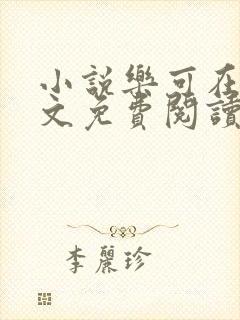 小説樂可在
文免費閱讀
李麗珍